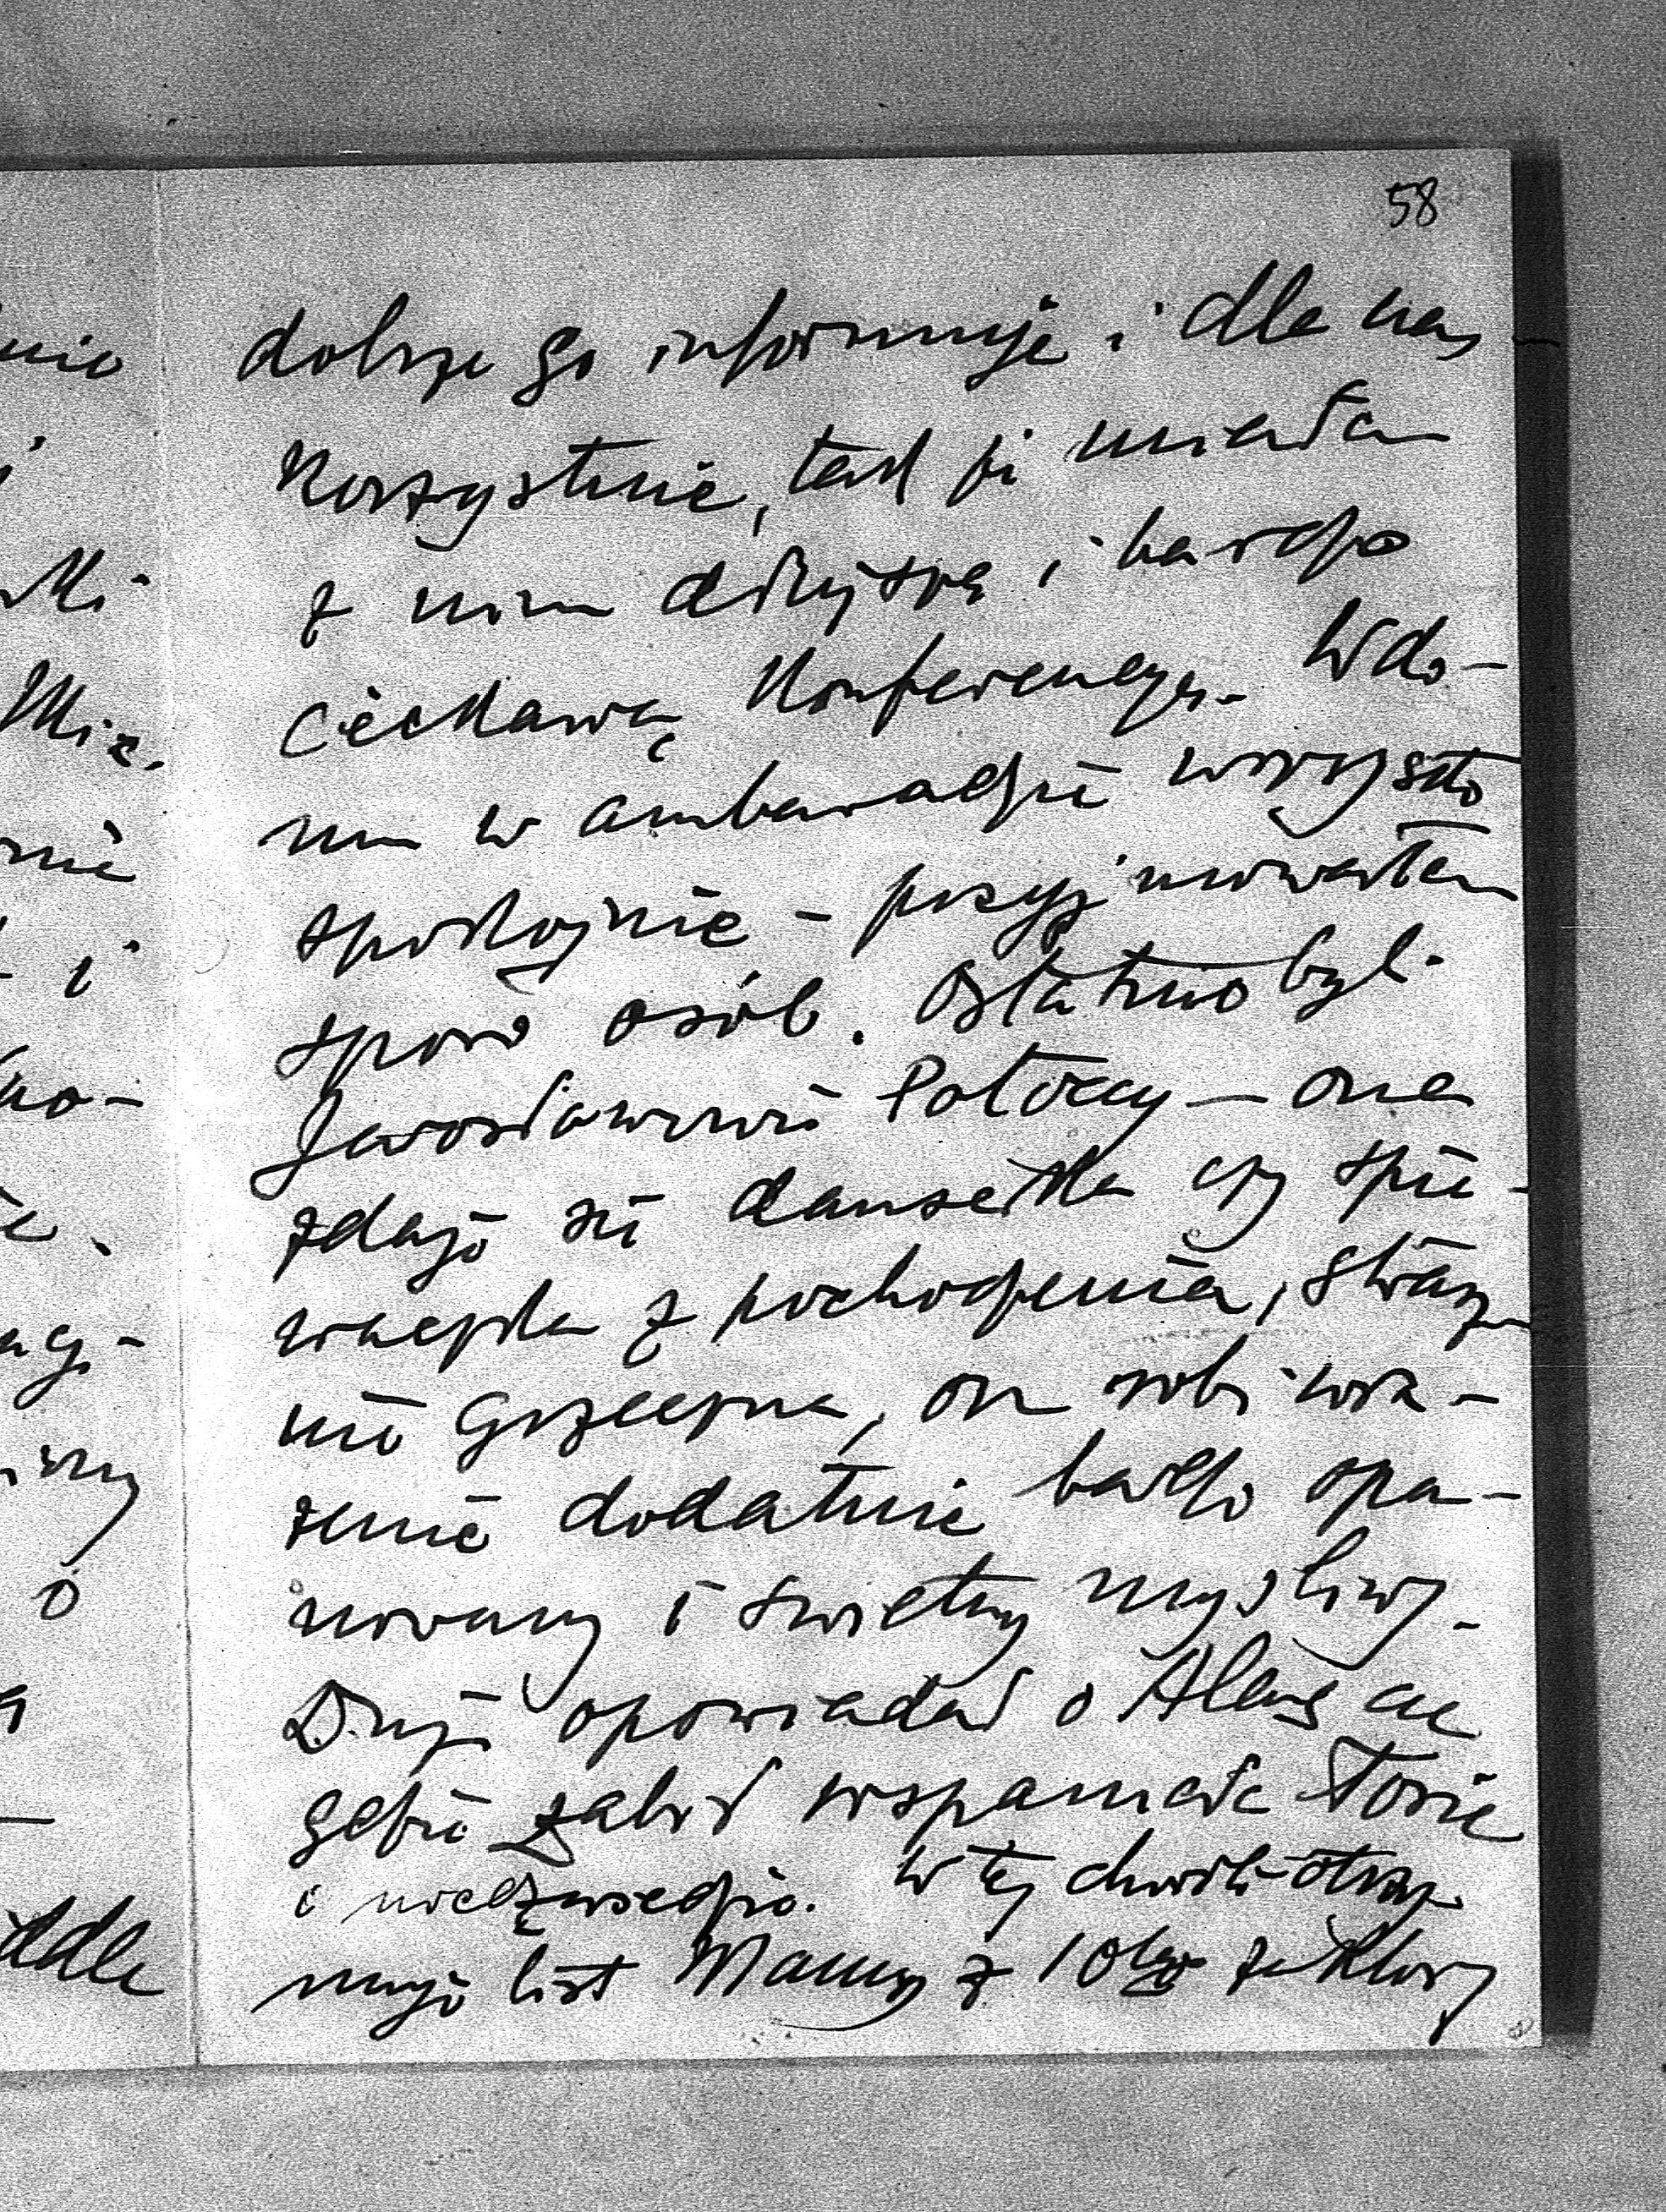 58
dobrze go informuje i dla nas
korzystnie, tak że miałam
z nim dłuższą i bardzo
ciekawą konferencję. W do-
mu w ambasadzie wszystko
spokojnie - przyjmowałam
sporo osób. Ostatnio byli
Jarosławowie Potoccy — ona
zdaje się danserka czy śpie-
waczka z pochodzenia, strasz-
nie grzeczna, on robi wra-
żenie dodatnie bardzo opa-
nowany i świetny myśliwy.
Dużo opowiadał o Alasce
gdzie zabił wspaniałe łosie
i niedźwiedzia. W tej chwili otrzy-
muję list Mamy z 10go za który